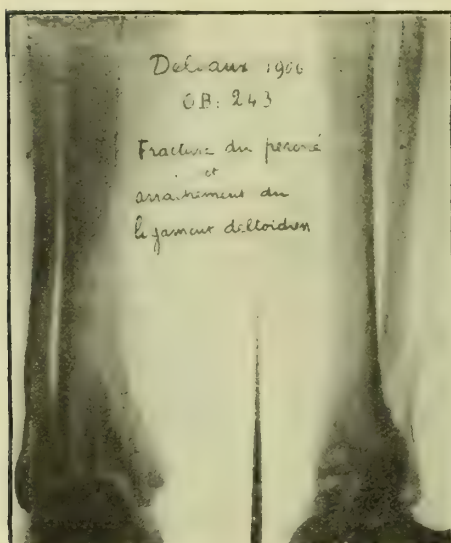 Deleaux 1906
OB: 243
Fracture du péroné
et
arrachement du
ligament deltoïdien